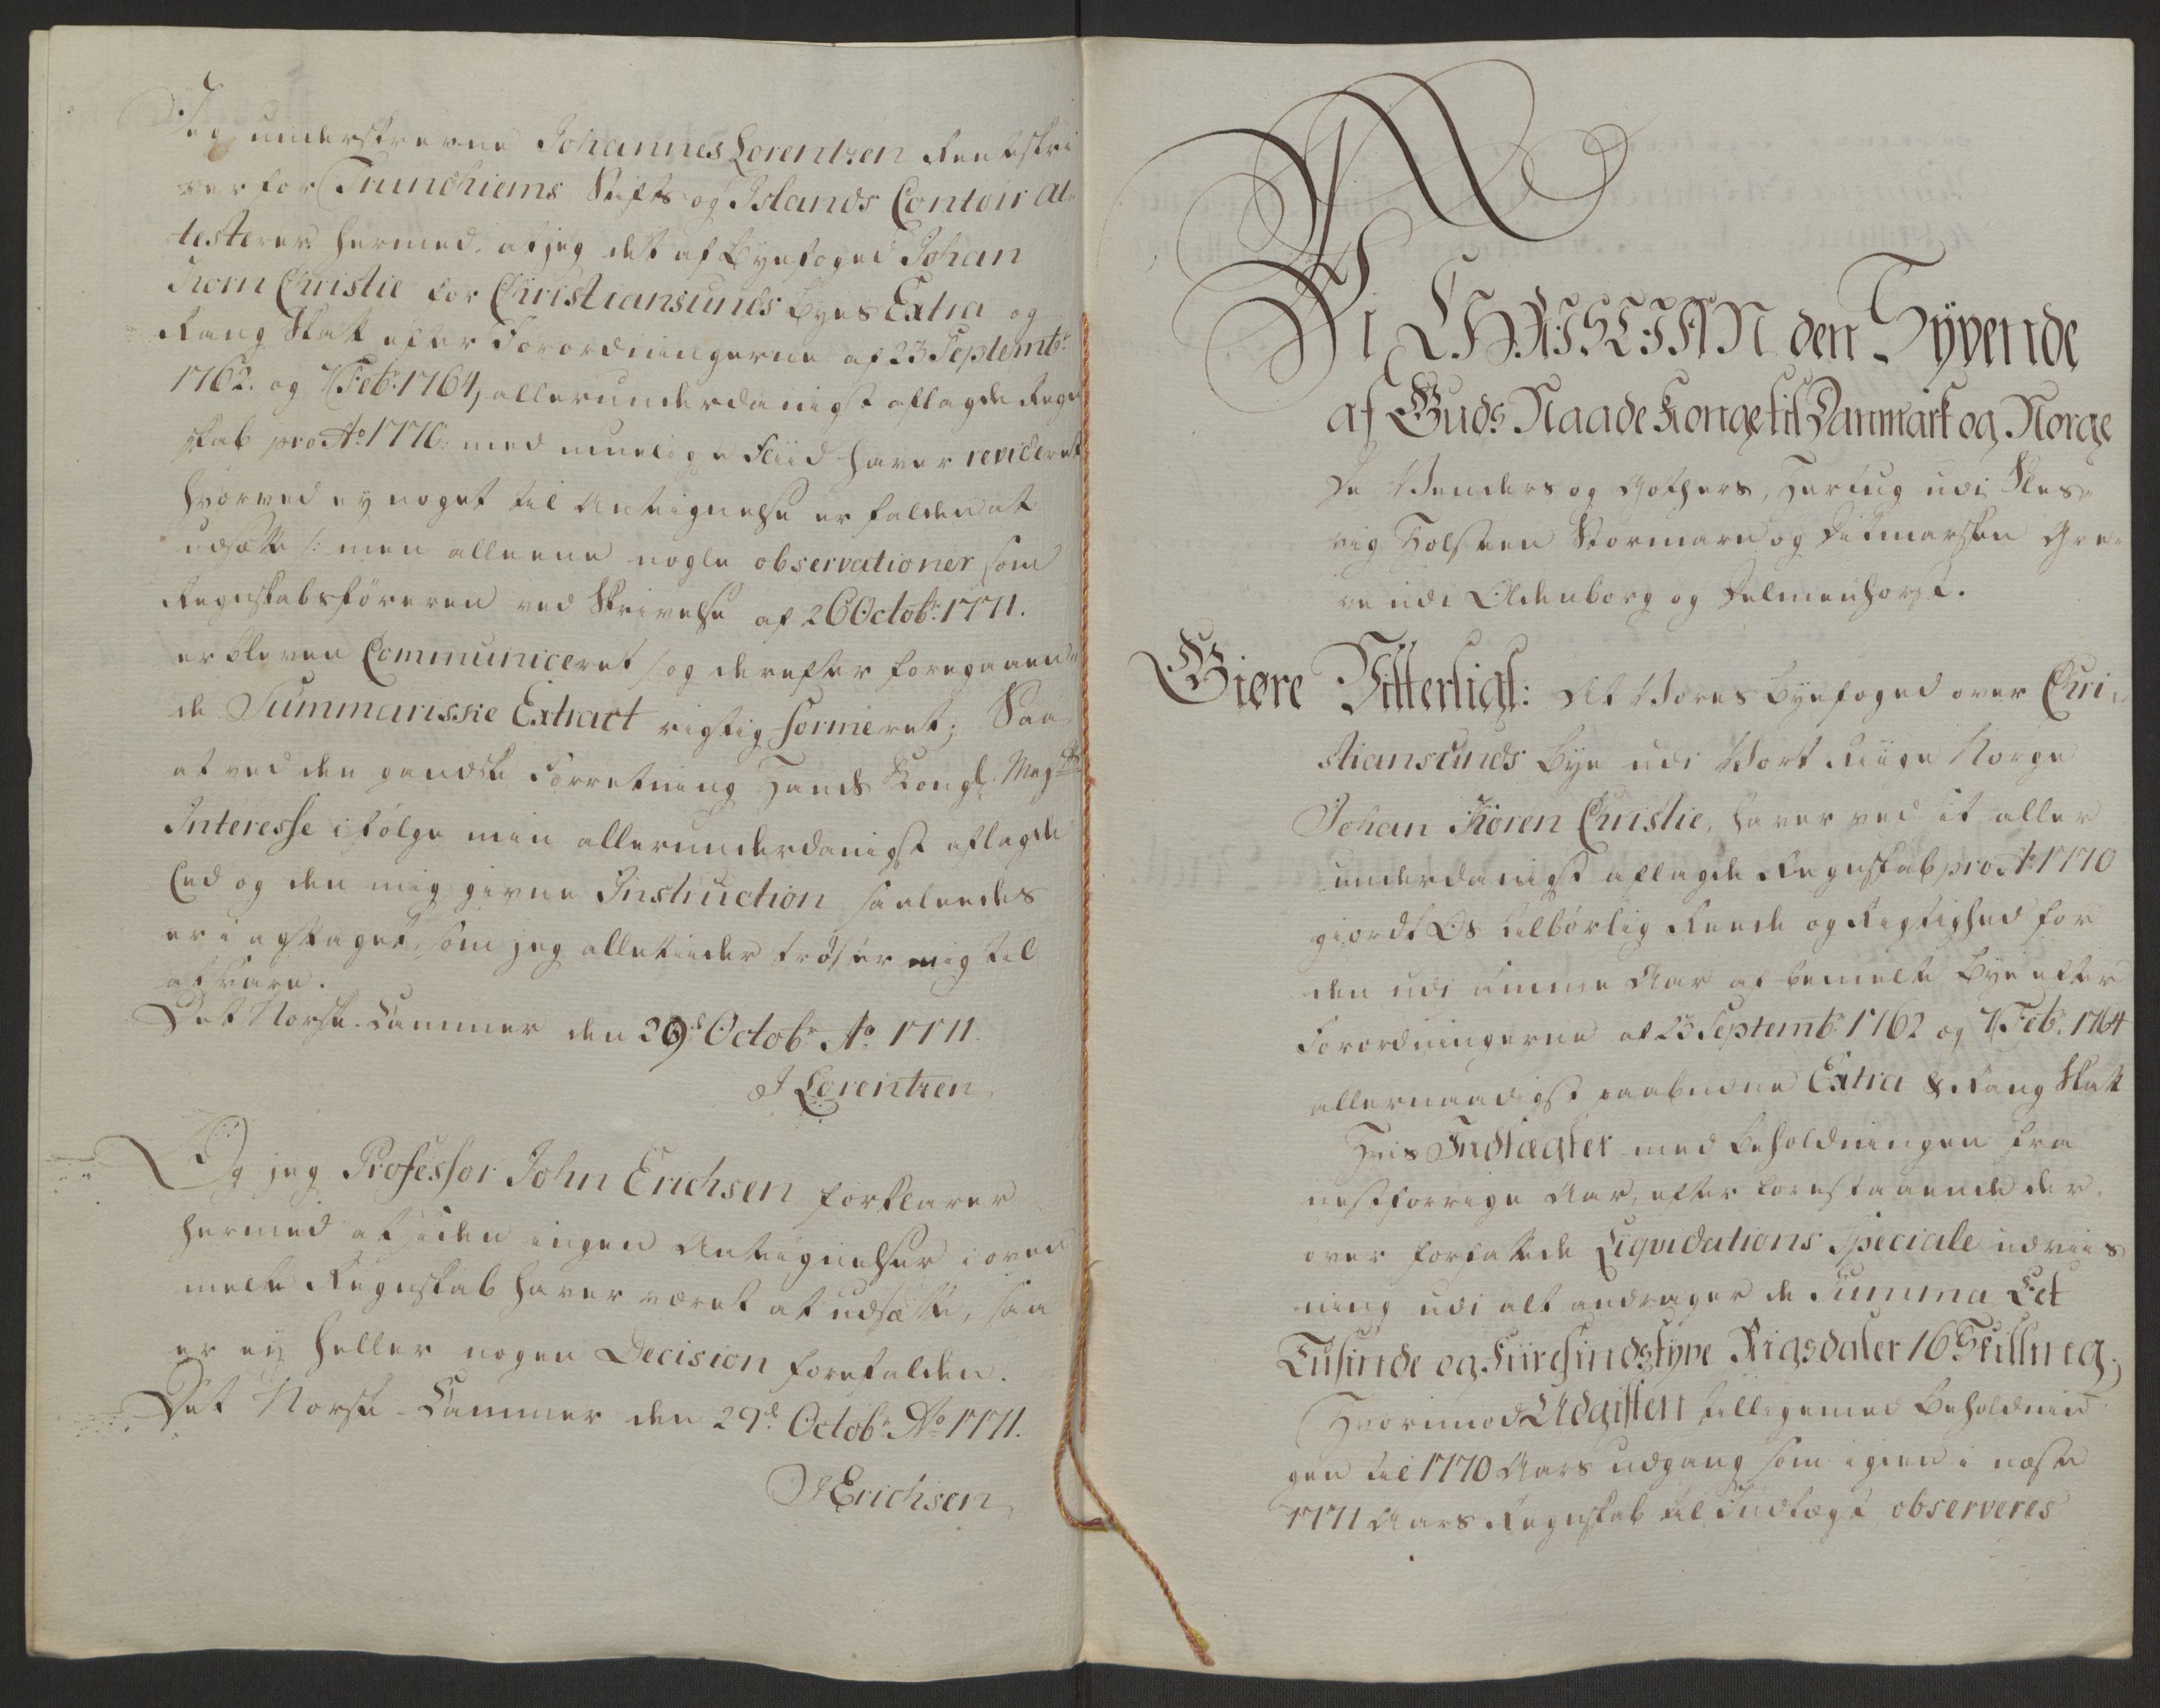 Jeg underskrevne Johannes Lorentzen Renteskri
ver for Trundhiems Stifts og Islands Contoir At
testerer hermed, at jeg det af Byefoged Johan
Korn Christie for Christiansunds Byes Extra og
Rang Skatt efter Forordningerne af 23 Septembr:
1762. og 7 Febr: 1764, allerunderdanigst aflagde Regn
skab pro Ao 1770. med muelige Fliid haver revideret
hvorved ey noget til Antegnelse er falden at
udsætte /: men alleene nogle observationer som
Regnskabsføreren ved Skrivelse af 26 Octobr: 1771.
er bleven Communiceret /og derefter foregaaen
de Summariske Extract rigtig formeret; Saa
at ved den gandske Forretning Hans Kongl. Maj:ts
Interesse ifølge min allerunderdanigst aflagde
Eed og den mig givne Instruction saaleedes
er iagttaget, som jeg alletiider trøster mig til
at svare.
Det Norske Cammer den 29d Octobr Ao 1771.
J Lorentzen
Og jeg Professor John Erichsen forklarer
hermed at siden ingen Antegnelser i oven
melte Regnskab haver været at udsætte, saa
er ey heller nogen Decision forefalden.
Det Norske Cammer den 29d Octobr: Ao 1771.
J Erichsen
Vi CHRISTIAN den Syvende
af Guds Naade Konge til Danmark og Norge
De Wenders og Gothers, Hertug udi Sles-
vig Holsteen Stormarn og Ditmarsken Gre-
ve udi Oldenborg og Delmenhorst.
Giøre Vitterligt: At Vores Byefoged over Chri
stiansunds Bye udi Vort Riige Norge
Johan Koren Christie, haver ved sit aller
underdanigst aflagde Regnskab pro Ao 1770
giordt Os tilbørlig Reede og Rigtighed for
den udi samme Aar af bemelte Bye efter
Forordningerne af 23 Septembr 1762 og 7 Febr. 1764
allernaadigst paabudne Extra & Rang Skatt
Hvis Indtægter med Beholdningen fra
nestforrige Aar, efter forestaaende der
over forfattede Liqvidations Speciale udviis
ning udi alt andrager de Summa Eet
Tusinde og Fiiresindstyve Rigsdaler 16 Skilling,
Hvorimod Udgiften tilligemed Beholdnin
gen til 1770 Aars udgang som igien i næste
1771 Aars Regnskab til Indtægt observeres